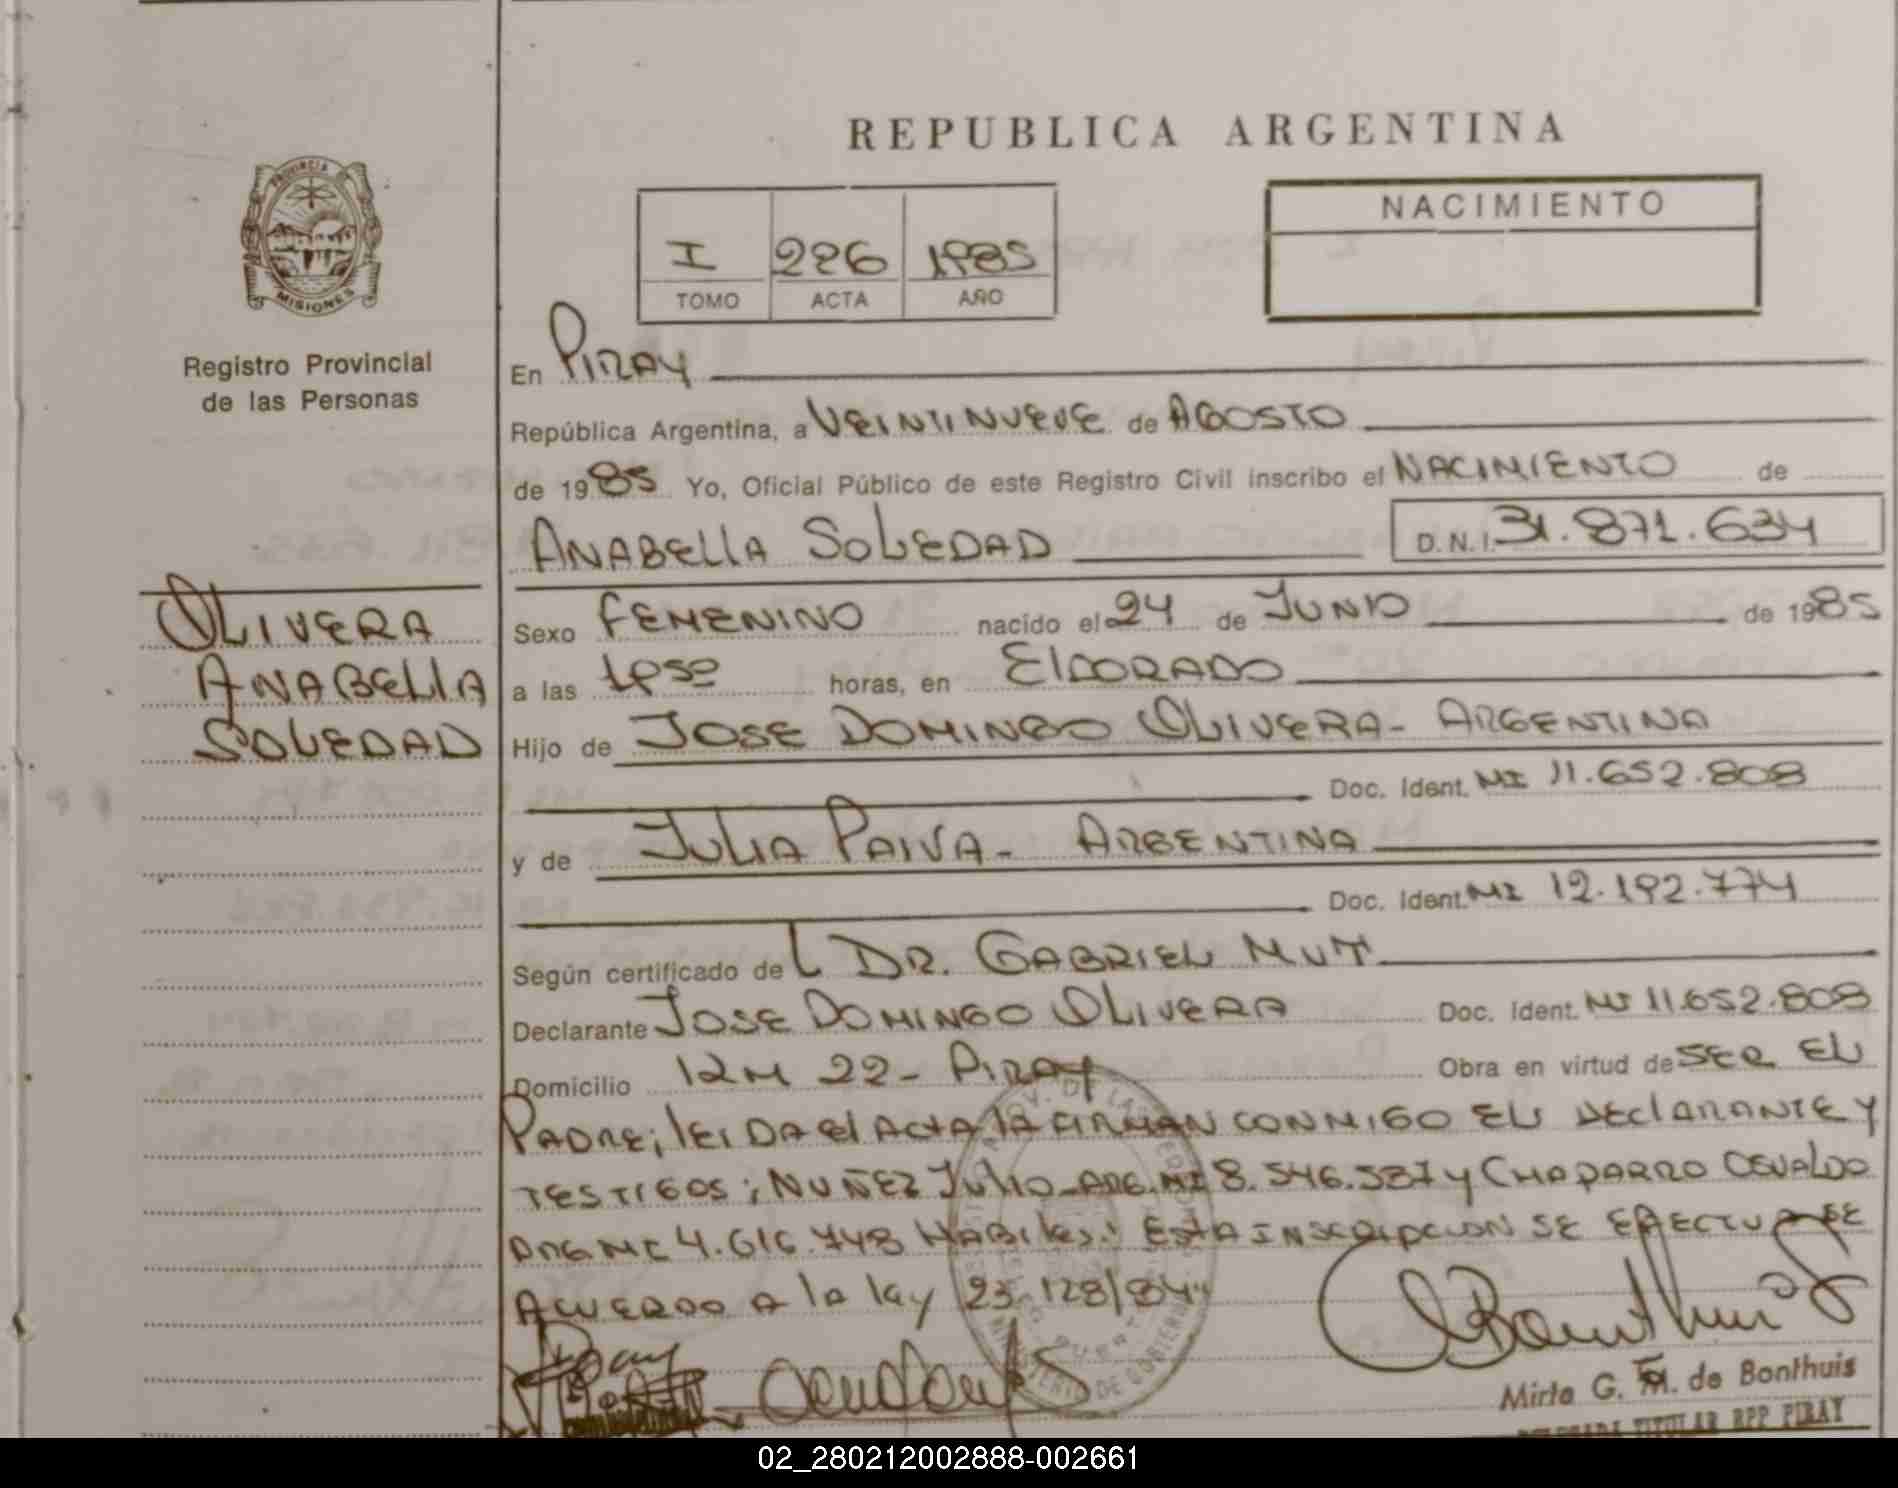 REPUBLICA ARGENTINA
PROVINCIA
MISIONES
Registro Provincial
de las Personas
I 226 1985
TOMO ACTA AÑO
NACIMIENTO
En PIRAY
República Argentina, a VEINTINUEVE de AGOSTO
de 1985 Yo, Oficial Público de este Registro Civil inscribo el NACIMIENTO de
ANABELLA SOLEDAD D.N.I. 31.871.634
OLIVERA
ANABELLA
SOLEDAD
Sexo FEMENINO nacido el 24 de JUNIO de 1985
a las horas, en ELDORADO
Hijo de JOSE DOMINGO OLIVERA - ARGENTINA
Doc. Ident. MI 11.652.808
y de JULIA PAIVA - ARGENTINA
Doc. Ident. MI 12.192.774
Según certificado de DR. GABRIEL MUT
Declarante JOSE DOMINGO OLIVERA Doc. Ident. MI 11.652.808
Domicilio KM 22 - PIRAY Obra en virtud de SER EL
PADRE; LEIDA EL ACTA LA FIRMAN CONMIGO EL DECLARANTE Y
TESTIGOS; NUÑEZ JULIO - ARG. MI 8.546.587 y CHAPARRO OSVALDO
ARG MI 4.616.748 HABILES. ESTA INSCRIPCION SE EFECTUA DE
ACUERDO A LA LEY 23.128/84"
Mirta G. M. de Bonthuis
DELEGADA TITULAR RPP PIRAY
02_280212002888-002661